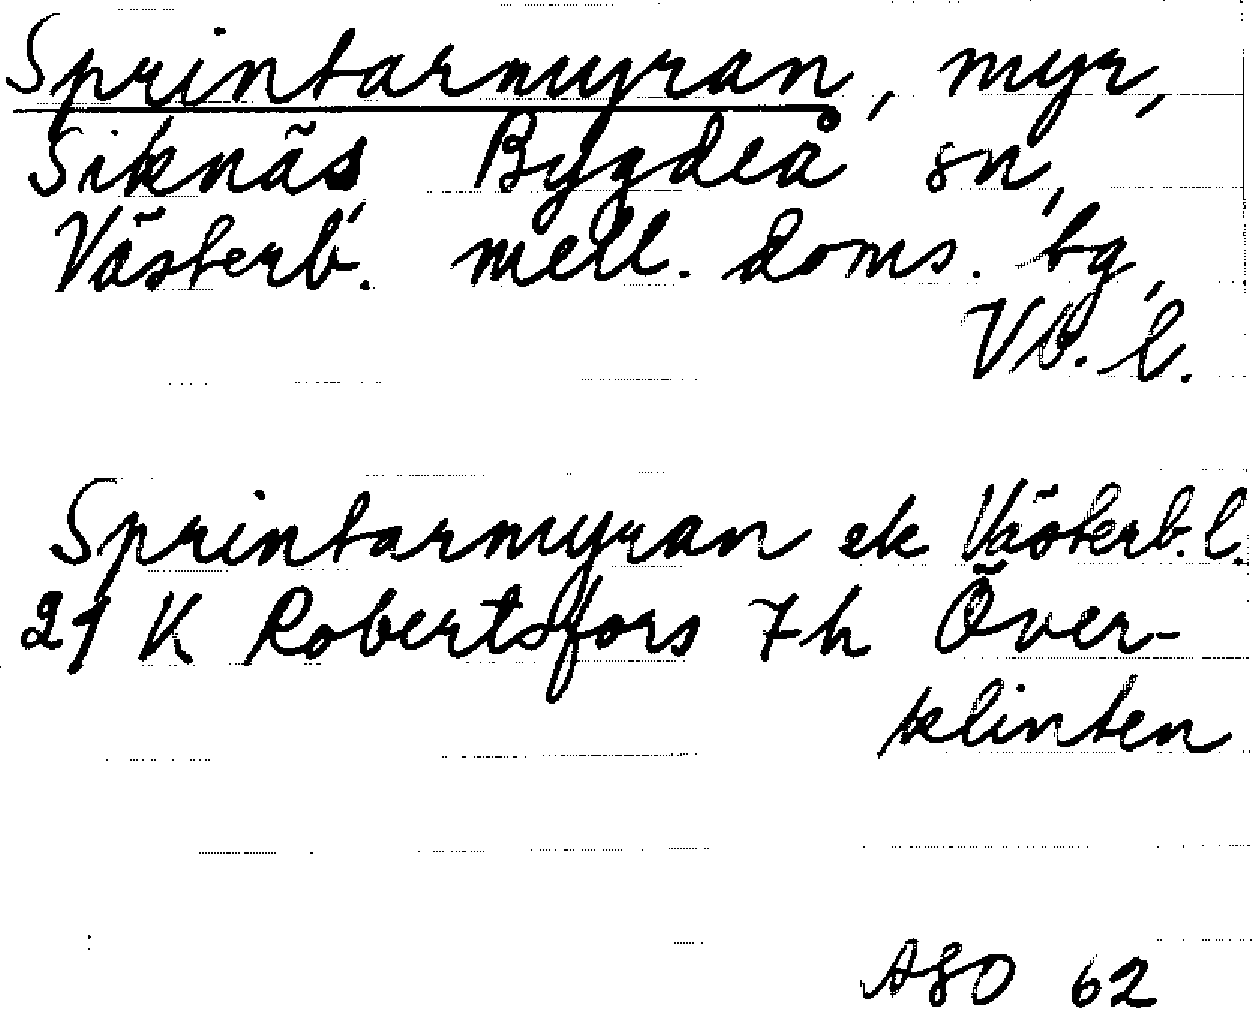 Sprintarmyran, myr,
Siknäs, Bygdeå sn,
Västerb. mell. doms. bg,
Vb. l.
Sprintarmyran ek Västerb. l.
21 K Robertsfors 7h Över-
klinten
ASO 62